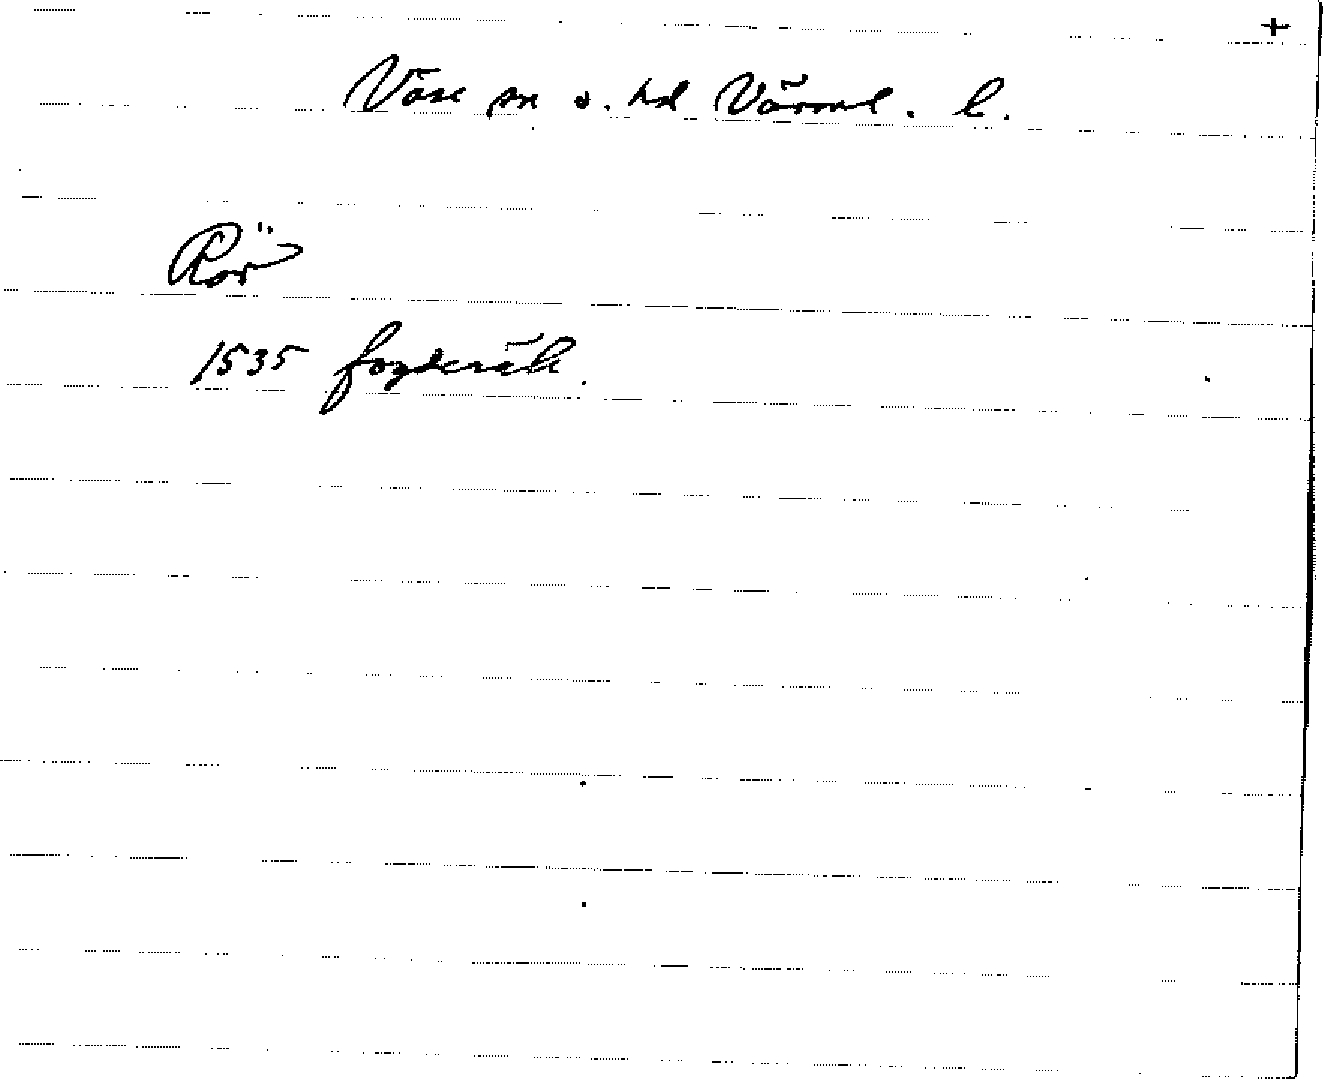 +
Väse sn o. hd Värml. l.
Rör
1535 fogderäk.